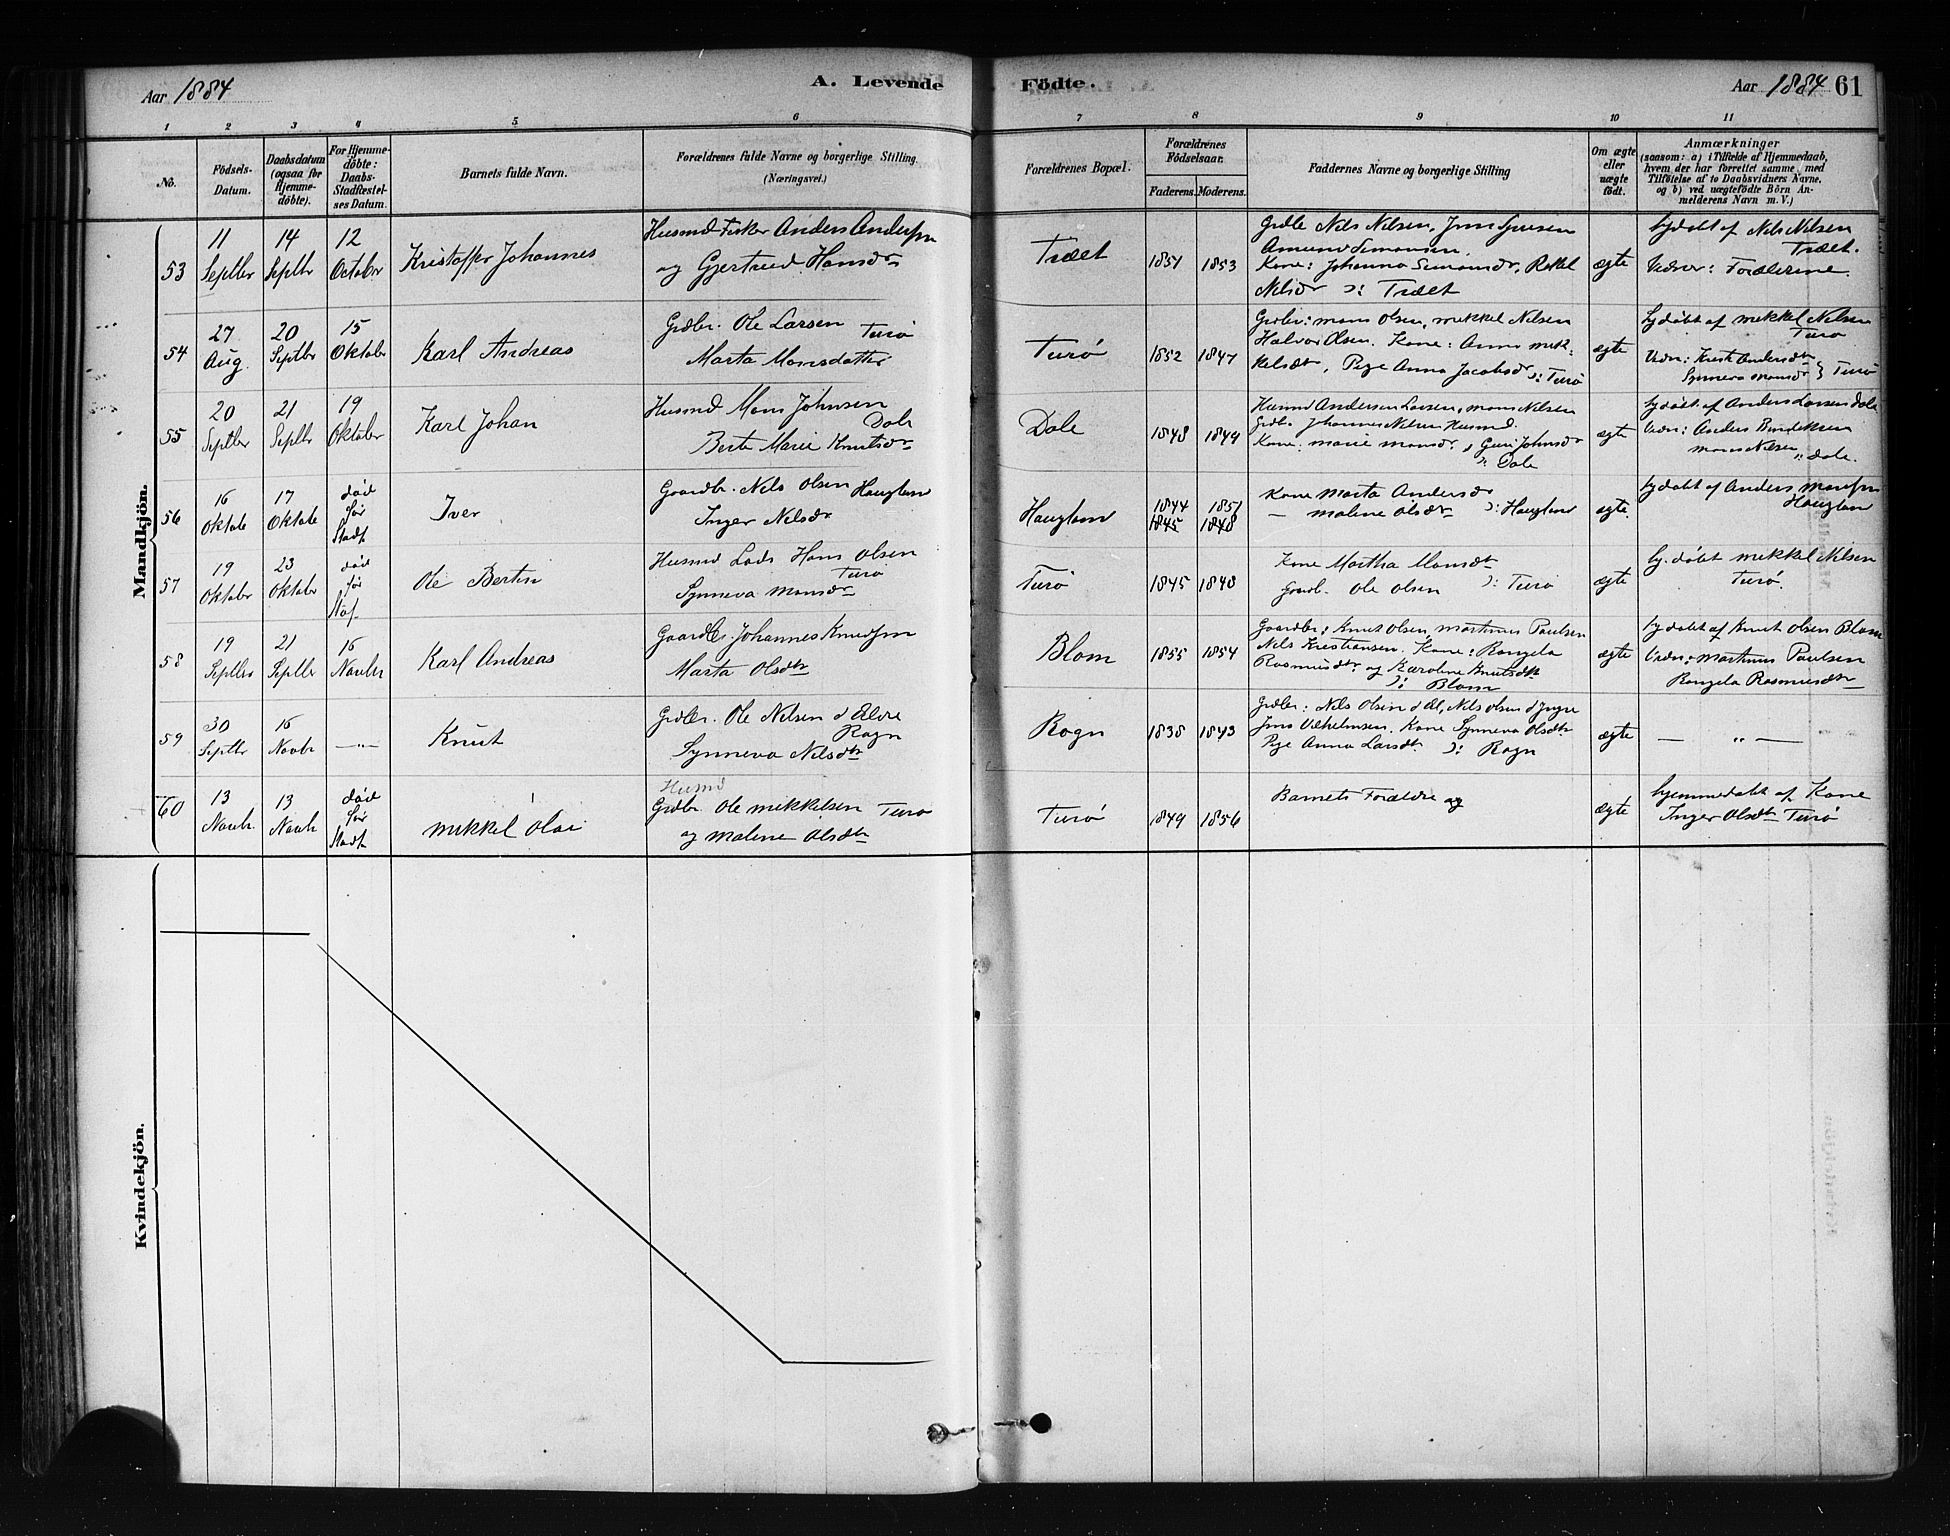 Aar 1884
A. Levende
Födte.
Aar 1884 61
1 2 3 4 5 6 7 8 9 10 11
No.
Födsels-
Datum.
Daabsdatum
(ogsaa for
Hjemme-
döbte).
For Hjemme-
döbte:
Daabs-
Stadfæstel-
ses Datum.
Barnets fulde Navn.
Forældrenes fulde Navne og borgerlige Stilling.
(Næringsvei.)
Forældrenes Bopæl.
Forældrenes
Födselsaar.
Faderens. Moderens.
Faddernes Navne og borgerlige Stilling
Om ægte
eller
uægte
födt.
Anmærkninger
(saasom: a) i Tilfælde af Hjemmedaab,
hvem der har forrettet samme, med
Tilföielse af to Daabsvidners Navne,
og b) ved uægtefödte Börn An-
melderens Navn m. V.)
Mandkjön.
53
11
Septbr
14
Septbr
12
October
Kristoffer Johannes
Husmd Fisker Anders Andersen
og Gjertrud Hansdr
Træet
1851 1853
Nils Nilsen, Jens
Amund Simonsen,
Kone: Johanna Simonsdr, Rakel
Nilsdr Træet
ægte
hjdøbt af Nils Nilsen
Træet.
Vidner: Forældrene.
54
27
Aug.
20
Septbr
15
Oktober
Karl Andreas
Grdbr. Ole Larsen Turø
Marta Monsdatter
Turø
1852 1847
Grdbr: Mons Olsen, Mikkel Nilsen
Halvor Olsen. Kone: Anna Mik-
kelsdt, Pige Anna Jacobsdr Turø
ægte
hjdøbt af Mikkel Nilsen
Turø
Vidn: Kristi Andersdt
Synneva Monsdr } Turø
55
20
Septbr
21
Septbr
19
Oktober
Karl Johan
Husmd Mons Johnsen
Dale
Berte Marie Knutsdr
Dale
1848 1849
Husmd Andersen Larsen, Mons Nilsen
Grdbr Johannes Nilsen Husmd.
Kone: Marie Monsdr, Guri Johnsdr
Dale
ægte
hjdøbt af Anders Larsen Dale
Vidn: Anders Bendiksen
Mons Nilsen, Dale.
56
16
Oktobe
17
Oktobe
død
før
Stadf
Iver
Gaardbr. Nils Olsen Haugland
Inger Nilsdr
Haugland
1844 1851
1845 1848
Kone Marta Andersdr
— Malene Olsdt Haugland
ægte.
hjdøbt af Anders Monsen
Haugland
57
19
Oktober
23
Oktober
død
før
Staf.
Ole Bertin
Husmd Lods Hans Olsen
Turø
Synneva Monsdr
Turø
1845 1848
Kone Martha Monsdt
Gaardb. Ole Olsen Turø
ægte
hj. døbt Mikkel Nilsen
Turø.
58
19
Septbr
21
Septbr
16
Novbr
Karl Andreas
Gaardbr. Johannes Knudsen
Marta Olsdtr
Blom
1855 1854
Gaardbr: Knut Olsen, Martinus Paulsen
Nils Kristiansen. Kone: Rangela
Rasmusdt og Karoline Knutsdt
Blom
ægte
hjdøbt af Knut Olsen Blom
Vidn: Martinus Paulsen
Rangela Rasmusdt
59
30
Septbr
16
Novbr
— „ —
Knut
Grdbr. Ole Nilsen d Eldre
Rogn
Synneva Nilsdtr
Rogn
1838 1843
Grdbr: Nils Olsen d Æl, Nils Olsen d Yngre
Jens Vilhelmsen. Kone Synneva Olsdt
Pige Anna Larsdt. Rogn
ægte
— „ —
60
13
Novbr.
13
Novbr
død
før
Stadf
Mikkel Olai
Husmd
Grdbr Ole Mikkelsen Turø
og Malene Olsdtr
Turø
1849 1856
Barnets Forældre og
ægte
hjemmedøbt af Kone
Inger Olsdt Turø
Kvindekjön.